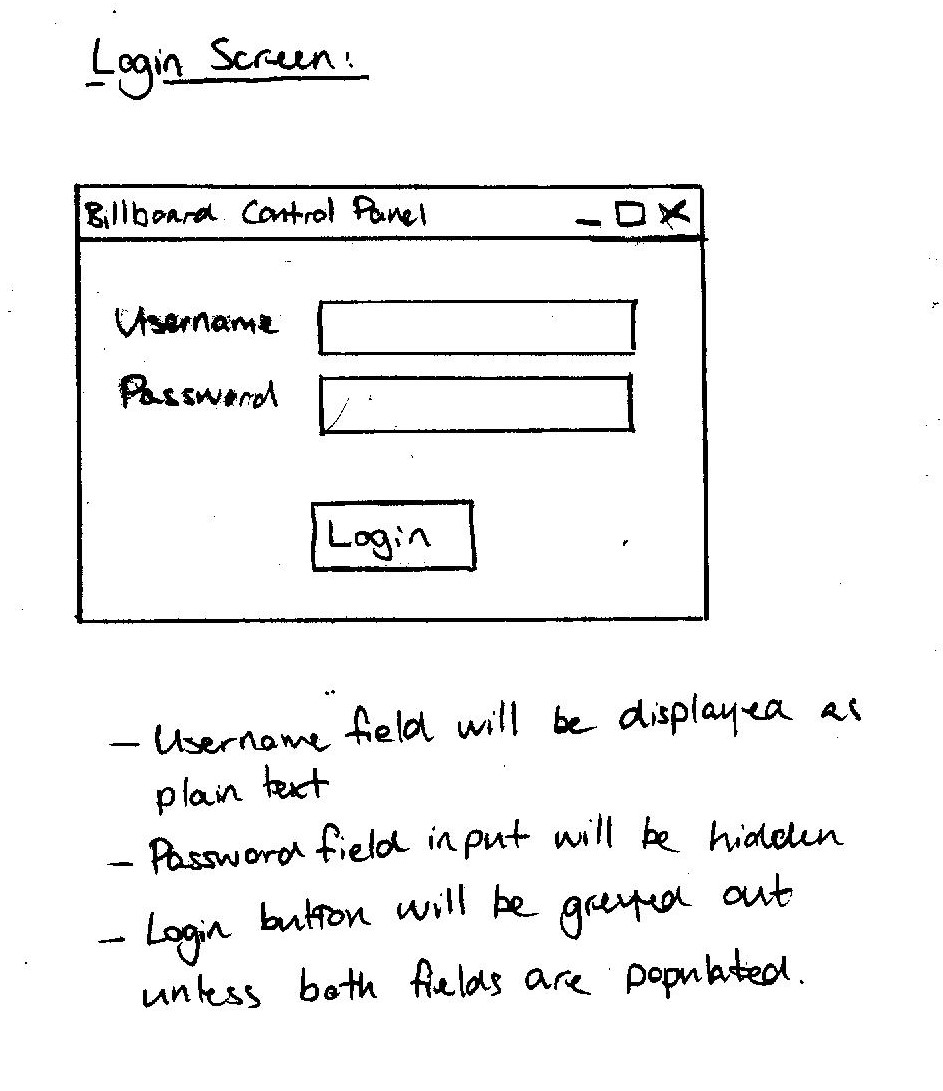 Login Screen:
Billboard Control Panel
Username
Password
Login
- Username field will be displayed as
plain text
- Password field input will be hidden
- Login button will be greyed out
unless both fields are populated.